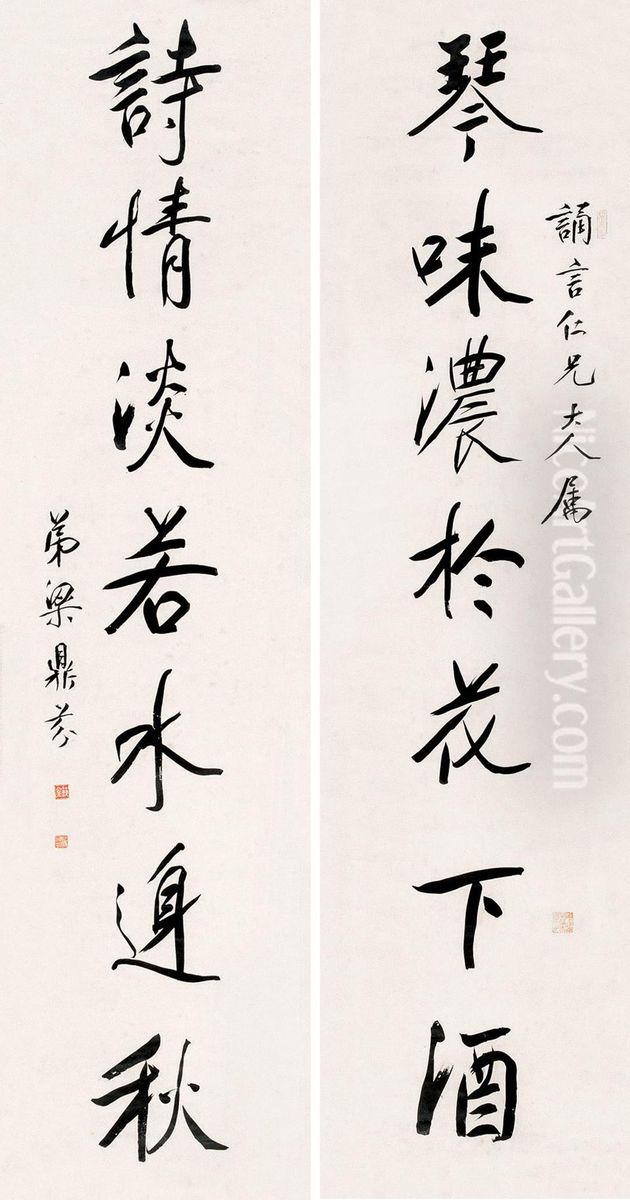 誦言仁兄大人属
琴味濃於花下酒
詩情淡若水邊秋
弟梁鼎芬
NiceArtGallery.com